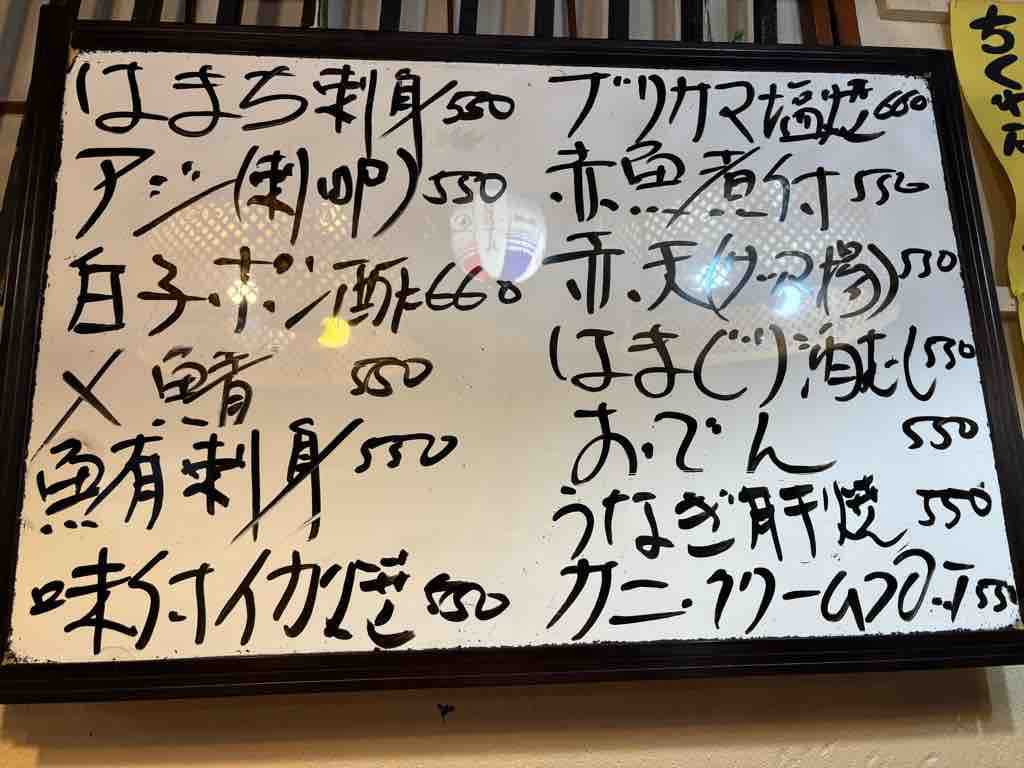 はまち刺身 550
アジ(刺 叩) 550
白子ポン酢 660
〆鯖 550
鮪刺身 550
味付イカ焼 550
ブリカマ塩焼 660
赤魚煮付 550
赤天(ソース 揚) 550
はまぐり酒むし 550
おでん 550
うなぎ肝焼 550
カニ・クリームコロッケ 550
ちくわ